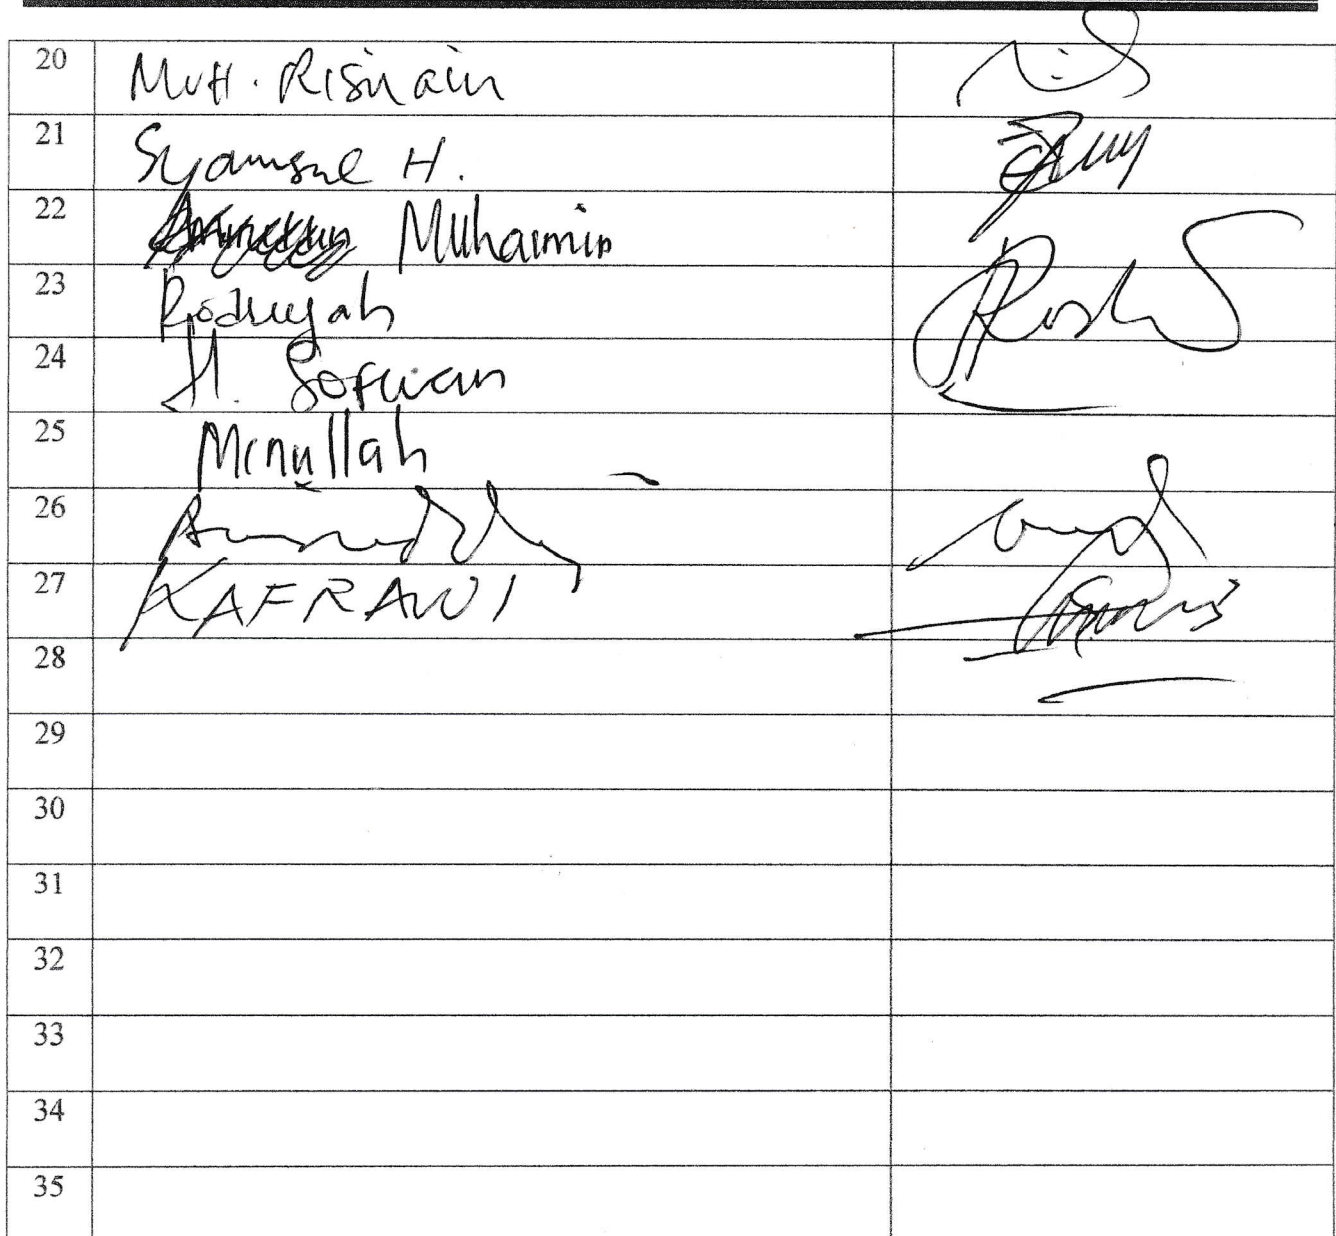 20 MUH. Risnain
21 Syamsul H.
22 Muhaimin
23 Rodiyah
24 H. Sofwan
25 Minullah
26
27 KAFRAWI
28
29
30
31
32
33
34
35